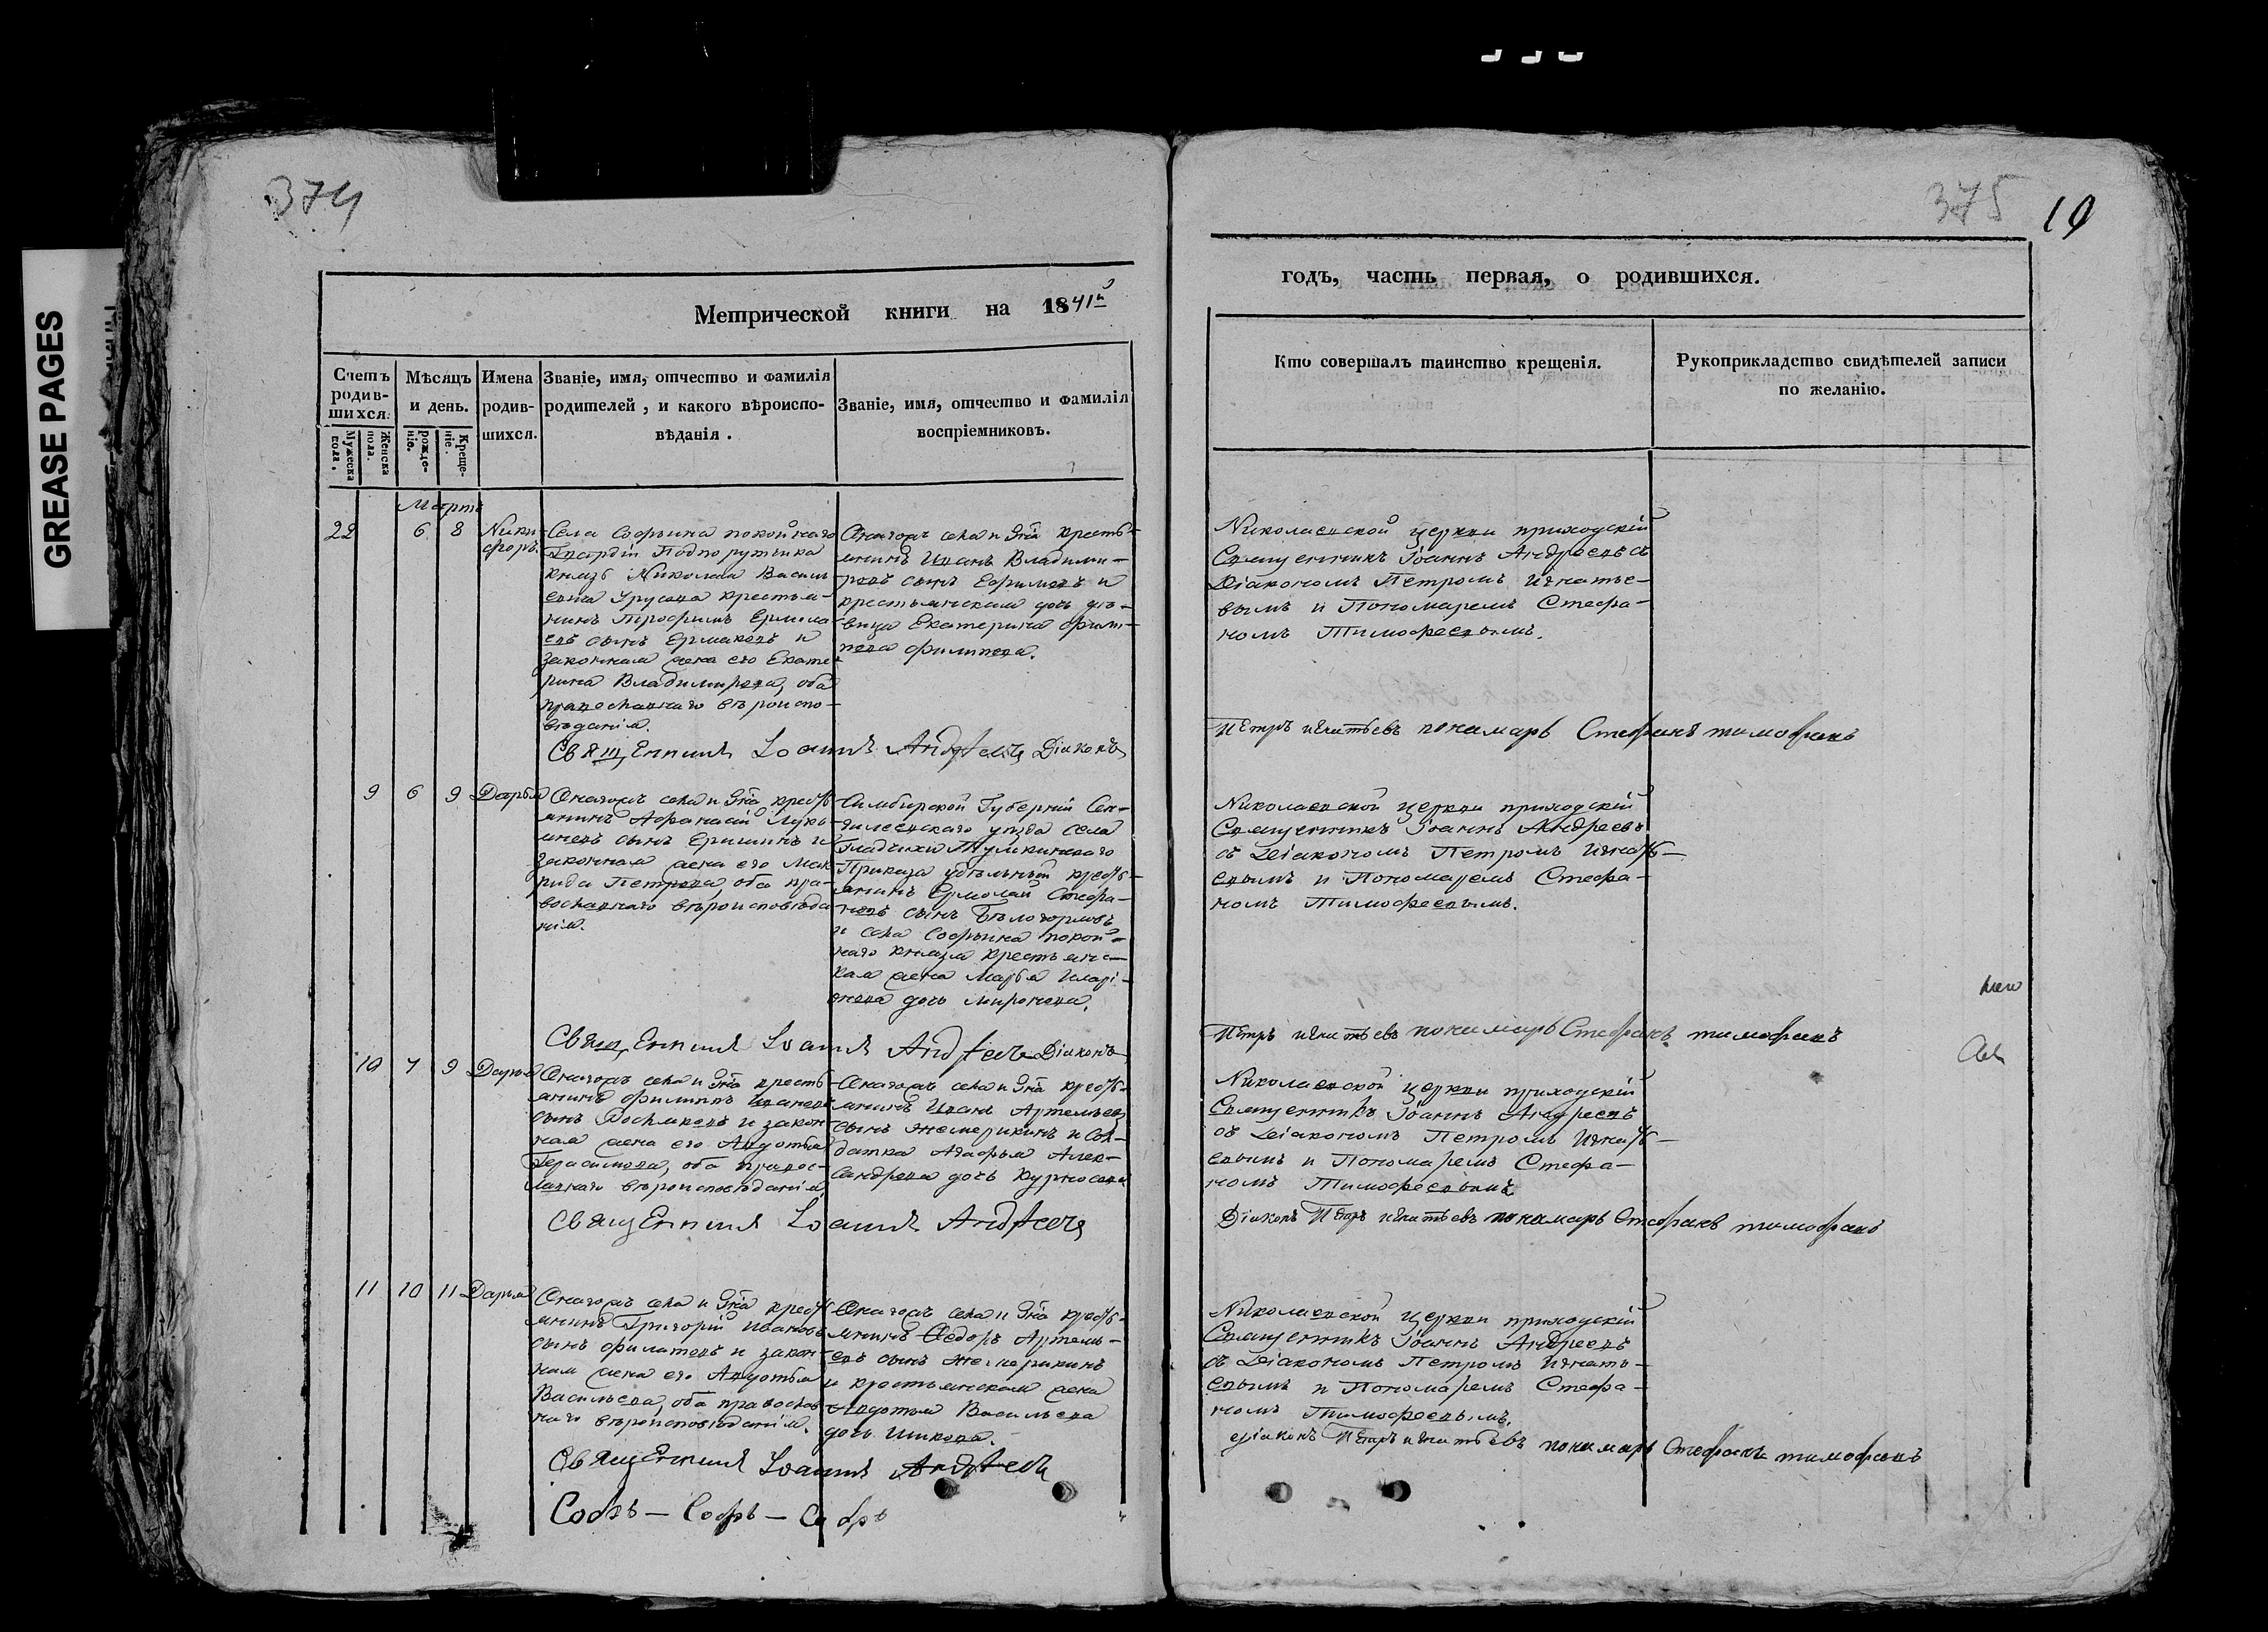 GREASE PAGES
374
Метрической книги на 1841й
Счетъ родив-шихся.
Мужеска пола.
Женска пола.
Мѣсяцъ и день.
рожде-ніе.
Креще-ніе.
Имена родив-шихся.
Званіе, имя, отчество и фамилія
родителей, и какого вѣроиспо-
вѣданія.
Званіе, имя, отчество и фамилія
воспріемниковъ.
Мартъ
22 6 8 Ники-
форъ.
Села Софьина покойнаго
Гвардіи Подпорутчика
князь Николая Василь
евича Урусова крестья-
нинъ Трофимъ Ермола
евъ сынъ Ермаковъ и
законная жена его Екате
рина Владимирова, оба
православнаго вѣроиспо-
вѣданія.
Онагожъ села и Гна кресть-
янинъ Иванъ Владими-
ровъ сынъ Ефимовъ и
крестьянская дочь дѣ-
вица Екатерина Фили-
пова Филипова.
Священникъ Іоаннъ Андреевъ Діаконъ
9 6 9 Дарья
Онагожъ села и Гна кресть
янинъ Афанасій Лукь
яновъ сынъ Еришинъ и
законная жена его Мак
рида Петрова, оба пра-
вославнаго вѣроисповѣда
нія.
Симбирской Губерніи Сен-
гилеевскаго уѣзда села
Приказа удѣльный кресть-
янинъ Ермолай Стефа-
новъ сынъ
и села Софьина покой-
наго князя крестьянс-
кая жена Марья Иларі-
онова дочь Миронова.
Священникъ Іоаннъ Андреевъ Діаконъ
10 7 9 Дарья
Онагожъ села и Гна кресть
янинъ Филиппъ Ивановъ
сынъ и закон
ная жена его Авдотья
Герасимова, оба правос-
лавнаго вѣроисповѣданія
Онагожъ села и Гна кресть-
янинъ Иванъ Артемьев
сынъ Жемерикинъ и Сол-
датка Агафья Алек-
сандрова дочь Курносова
Священникъ Іоаннъ Андреевъ
11 10 11 Дарья
Онагожъ села и Гна кресть
янинъ Григорій Ивановъ
сынъ Филатовъ и закон-
ная жена его Авдотья
Васильева, оба православ
наго вѣроисповѣданія.
Онагожъ села и Гна кресть-
янинъ Ѳедоръ Артемь-
евъ сынъ Жемерикинъ
и крестьянская жена
Авдотья Васильева
дочь Шикова.
Священникъ Іоаннъ Андреевъ
375
10
годъ, часть первая, о родившихся.
Кто совершалъ таинство крещенія.
Рукоприкладство свидѣтелей записи
по желанію.
Николаевской церкви приходскій
Священникъ Іоаннъ Андреевъ съ
Діакономъ Петромъ Игнатье-
вымъ и Пономаремъ Стефа-
номъ Тимофеевымъ.
Петръ Игнатьевъ понамарь Стефанъ тимофеевъ
Николаевской церкви приходскій
Священникъ Іоаннъ Андреевъ
съ Діакономъ Петромъ Игнать-
евымъ и Пономаремъ Стефа-
номъ Тимофеевымъ.
Петръ Игнатьевъ понамарь Стефанъ тимофеевъ
Николаевской церкви приходскій
Священникъ Іоаннъ Андреевъ
съ Діакономъ Петромъ Игнать-
евымъ и Пономаремъ Стефа-
номъ Тимофеевымъ
Діаконъ Петръ Игнатьевъ понамарь Стефанъ тимофеевъ
Николаевской церкви приходскій
Священникъ Іоаннъ Андреевъ
съ Діакономъ Петромъ Игнать-
евымъ и Пономаремъ Стефа-
номъ Тимофеевымъ.
діаконъ Петръ Игнатьевъ понамарь Стефанъ тимофеевъ